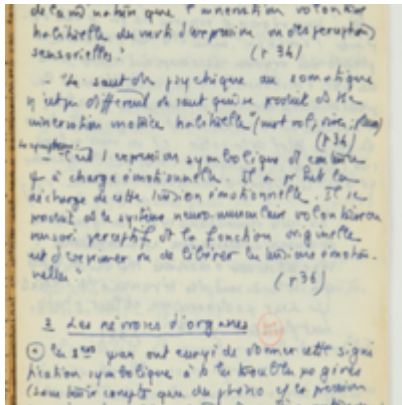 de la même nature que l'innervation volontaire
habituelle du verbe d'expression ou des perceptions
sensorielles" (p 34)
- "Le saut du psychique au somatique
n'est pas différent du saut qui se produit ds the
innervation motrice habituelle" (mvt vol, rire,
(p 34)
- C'est l'expression symbolique d'un contenu
ψ à charge émotionnelle. Il a pr but la
décharge de cette tension émotionnelle. Il se
produit ds le système neuro-musculaire volontaire ou
sensori perceptif dt la fonction originelle
est d'exprimer ou de libérer les tensions émotion-
nelles" (p 36)
3 Les névroses d'organes
les 1ers ψan ont essayé de donner cette signi
fication symbolique à ts les troubles
(sans tenir compte que des phéno